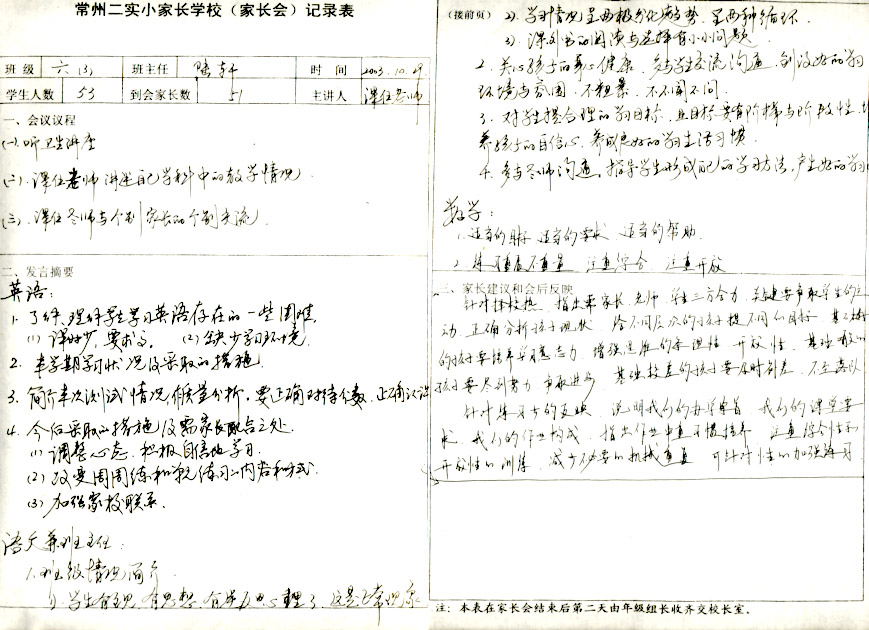 常州二实小家长学校（家长会）记录表
班级 六(3) 班主任 时间 2003.10.29
学生人数 53 到会家长数 51 主讲人 课任老师
一、会议议程
(一).听卫生讲座
(二).课任老师讲述自己学科中的教学情况.
(三).课任老师与个别家长的个别交流.
二、发言摘要
英语:
1. 了解理科学生学习英语存在的一些困难
(1) 课时少,要求高. (2) 缺少学习环境.
2. 本学期学习状况及采取的措施.
3. 简介本次测试情况,作质量分析,要正确对待分数,正确认识
4. 今后采取的措施及需家长配合之处.
(1) 调整心态,积极自信地学习.
(2) 改变周周练和练习内容和形式.
(3) 加强家校联系.
语文兼班主任:
1.班级情况简介.
1) 学生有主见,有思想,有逆反心理了,这是正常现象
（接前页）
2). 学习情况呈两极分化趋势,呈两种循环.
3). 课外书的阅读与选择有小小问题.
2. 关心孩子的身心健康,多与学生交流沟通,创设好的学习
环境与氛围,不粗暴,不不闻不问.
3. 对学生提合理的学习目标,且目标要有阶梯与阶段性,培
养孩子的自信心,养成良好的学习生活习惯.
4. 多与老师沟通,指导学生形成自己的学习方法,产生好的学习
数学:
1.适当的 适当的要求 适当的帮助.
2. 练重质不重量 注重综合 注重开放
三、家长建议和会后反映
针对择校热,指出需家长、老师、学生三方合力,关键要争取学生的主
动.正确分析孩子现状,给不同层次的孩子提不同的目标.
的孩子要培养学习意志力,增强思维的条理性、开放性.
孩子要尽到努力,争取进步.基础较差的孩子要及时到差,不至落队
针对练习书的反映,说明我们的办学宗旨,我们的课堂要
求,我们的作业构成,指出作业中重习惯培养,注重综合性和
开放性的训练,减少不必要的机械重复,可针对性的加强练习.
注：本表在家长会结束后第二天由年级组长收齐交校长室.